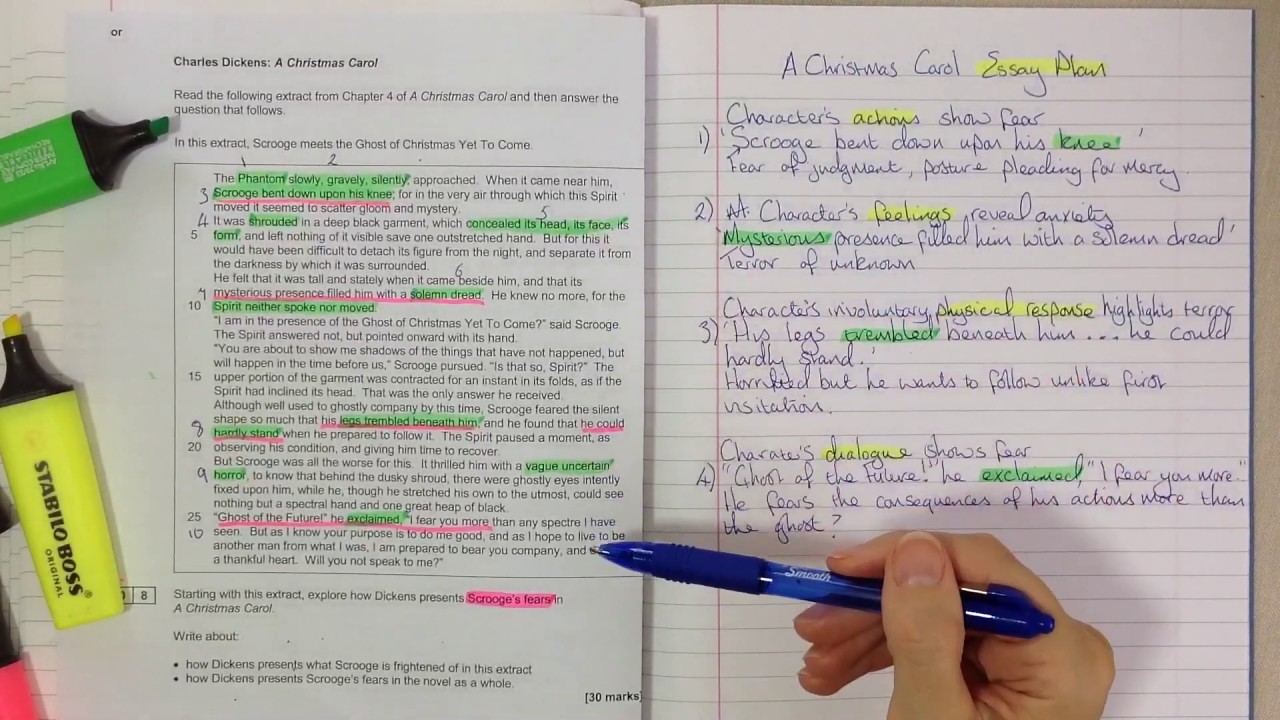 or
Charles Dickens: A Christmas Carol
Read the following extract from Chapter 4 of A Christmas Carol and then answer the
question that follows.
In this extract, Scrooge meets the Ghost of Christmas Yet To Come.
1 2
The Phantom slowly, gravely, silently, approached. When it came near him,
3 Scrooge bent down upon his knee; for in the very air through which this Spirit
moved it seemed to scatter gloom and mystery.
5
4 It was shrouded in a deep black garment, which concealed its head, its face, its
5 form, and left nothing of it visible save one outstretched hand. But for this it
would have been difficult to detach its figure from the night, and separate it from
the darkness by which it was surrounded.
6
He felt that it was tall and stately when it came beside him, and that its
7 mysterious presence filled him with a solemn dread. He knew no more, for the
10 Spirit neither spoke nor moved.
"I am in the presence of the Ghost of Christmas Yet To Come?" said Scrooge.
The Spirit answered not, but pointed onward with its hand.
"You are about to show me shadows of the things that have not happened, but
will happen in the time before us," Scrooge pursued. "Is that so, Spirit?" The
15 upper portion of the garment was contracted for an instant in its folds, as if the
Spirit had inclined its head. That was the only answer he received.
Although well used to ghostly company by this time, Scrooge feared the silent
shape so much that his legs trembled beneath him, and he found that he could
8 hardly stand when he prepared to follow it. The Spirit paused a moment, as
20 observing his condition, and giving him time to recover.
But Scrooge was all the worse for this. It thrilled him with a vague uncertain
9 horror, to know that behind the dusky shroud, there were ghostly eyes intently
fixed upon him, while he, though he stretched his own to the utmost, could see
nothing but a spectral hand and one great heap of black.
25 "Ghost of the Future!" he exclaimed, "I fear you more than any spectre I have
10 seen. But as I know your purpose is to do me good, and as I hope to live to be
another man from what I was, I am prepared to bear you company, and
a thankful heart. Will you not speak to me?"
8 Starting with this extract, explore how Dickens presents Scrooge's fears in
A Christmas Carol.
Write about:
• how Dickens presents what Scrooge is frightened of in this extract
• how Dickens presents Scrooge's fears in the novel as a whole.
[30 marks]
A Christmas Carol Essay Plan
Character's actions show fear
1) 'Scrooge bent down upon his knee'
Fear of judgment, posture pleading for mercy.
2) Character's feelings reveal anxiety
'Mysterious presence filled him with a solemn dread'
Terror of unknown
Character's involuntary physical response highlights terror
3) 'His legs trembled beneath him ... he could
hardly stand.'
Horrified but he wants to follow unlike first
visitation.
Charater's dialogue shows fear
4) "Ghost of the Future!" he exclaimed, "I fear you more"
He fears the consequences of his actions more than
the ghost?
STABILO BOSS
ORIGINAL
Smooth